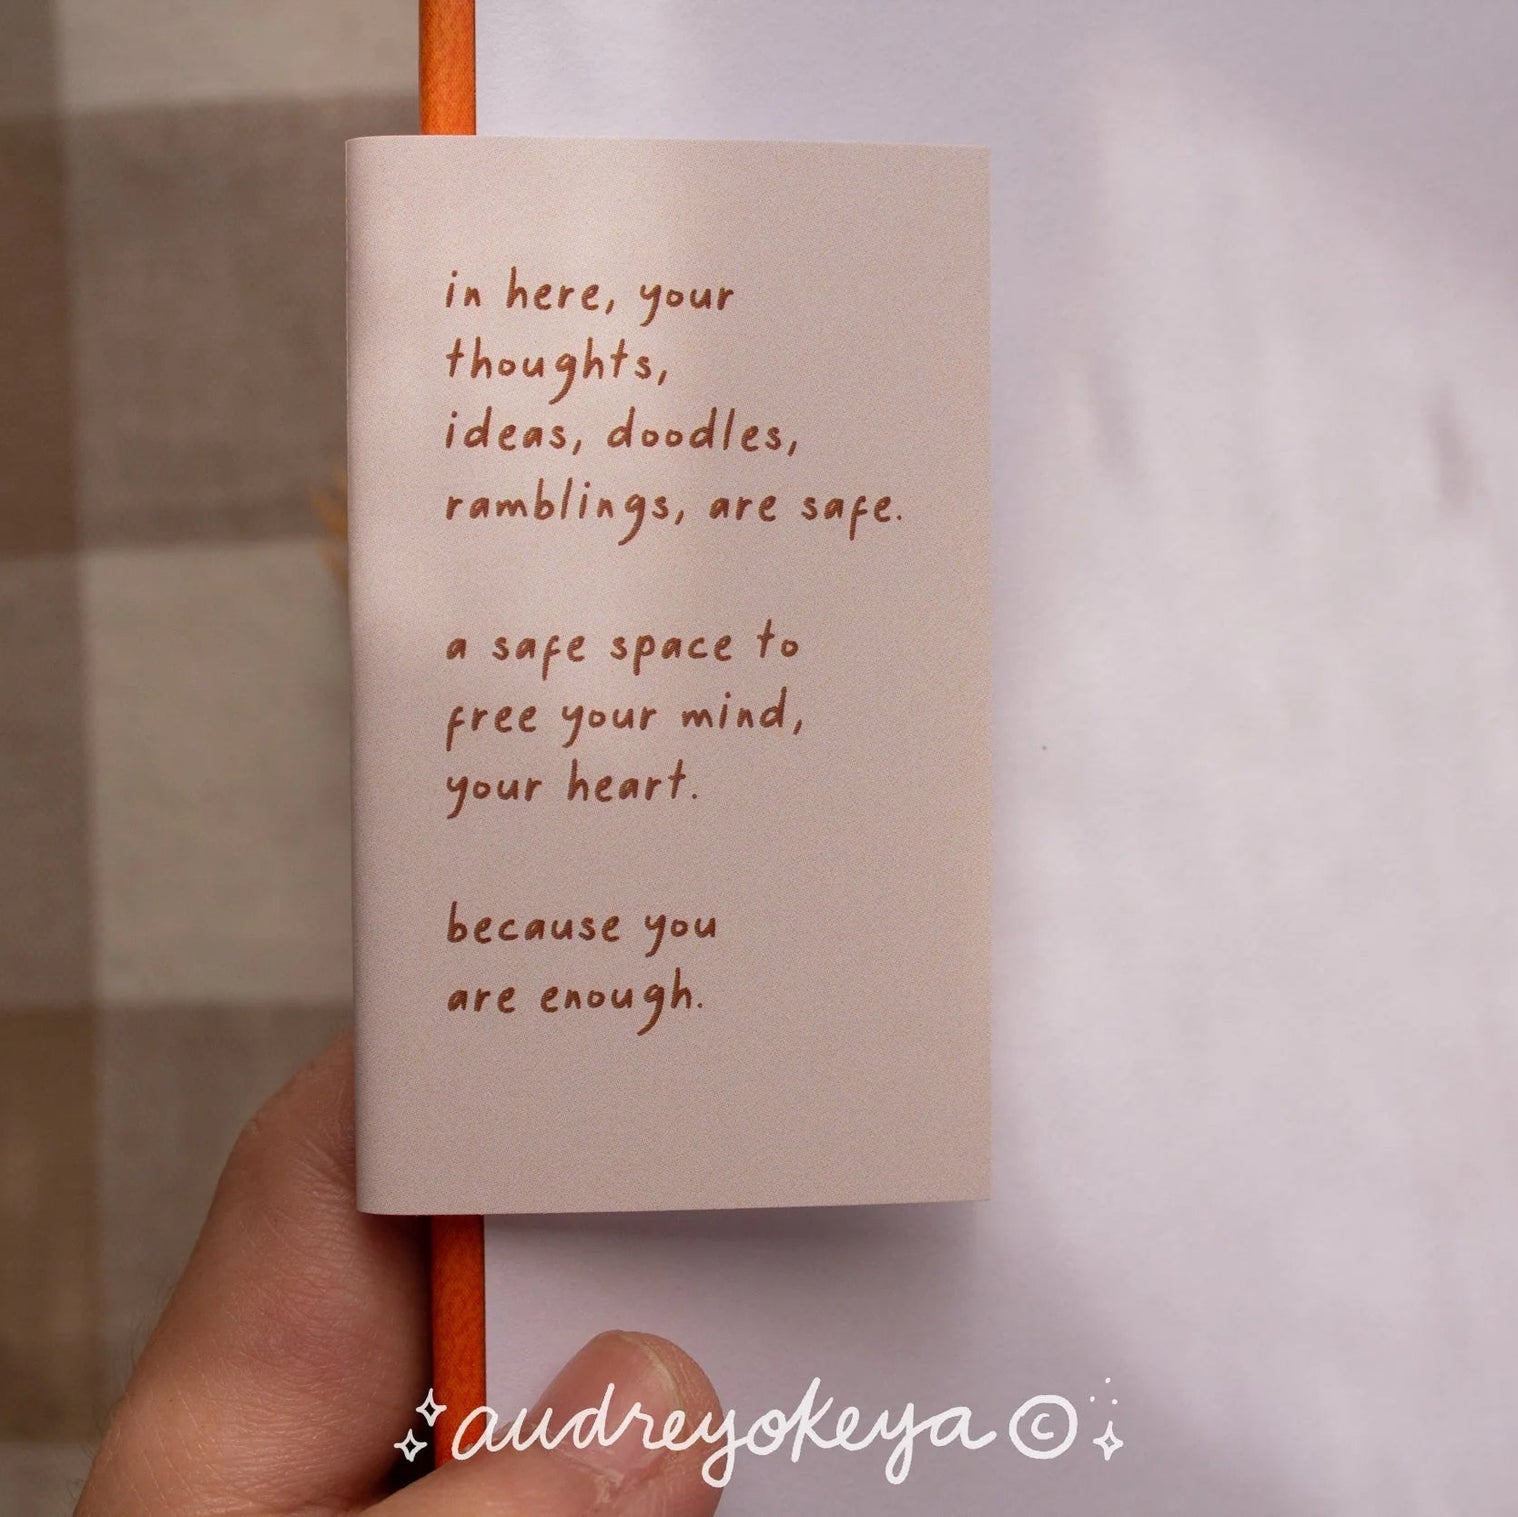 in here, your
thoughts,
ideas, doodles,
ramblings, are safe.
a safe space to
free your mind,
your heart.
because you
are enough.
audreyokeya ©